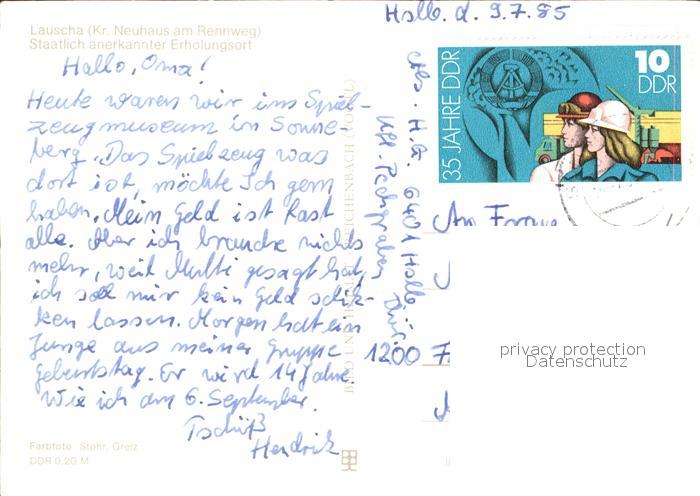 Lauscha (Kr. Neuhaus am Rennweg)
Staatlich anerkannter Erholungsort
Hallo, Oma!
Heute waren wir im Spiel-
zeugmuseum in Sonne-
berg. Das Spielzeug was
dort ist, möchte Ich gern
haben. Mein Geld ist fast
alle. Aber ich brauche nichts
mehr, weil Mutti gesagt hat,
ich soll mir kein Geld schik-
ken lassen. Morgen hat ein
Junge aus meiner Gruppe
Geburtstag. Er wird 14 Jahre.
Wie ich am 6. September.
Tschüß
Hendrik
Farbfoto Stöhr, Greiz
DDR 0,20 M
REICHENBACH
d. 9.7.85
Abs. H. G. 6401
35 JAHRE DDR
10
DDR
An Frau
1200 F
privacy protection
Datenschutz